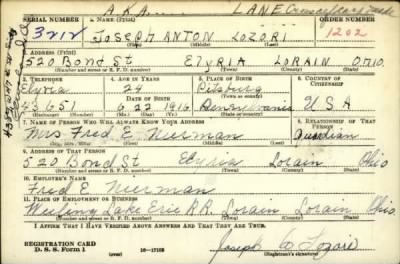 A.K.A. LANE
SERIAL NUMBER 1. NAME (Print) ORDER NUMBER
3212 JOSEPH ANTON LOZORI 1202
(First) (Middle) (Last)
2. ADDRESS (Print)
520 Bond St ELYRIA LORAIN OHIO
(Number and street or R. F. D. number) (Town) (County) (State)
3. TELEPHONE 4. AGE IN YEARS 5. PLACE OF BIRTH 6. COUNTRY OF CITIZENSHIP
Elyria 24 Pitsburg
(Exchange) DATE OF BIRTH (Town or county)
43651 6 22 1916 Pennsylvania U S A
(Number) (Mo.) (Day) (Yr.) (State or country)
7. NAME OF PERSON WHO WILL ALWAYS KNOW YOUR ADDRESS 8. RELATIONSHIP OF THAT PERSON
Mrs Fred E Nieman Guardian
(Mr., Mrs., Miss) (First) (Middle) (Last)
9. ADDRESS OF THAT PERSON
520 Bond St Elyria Lorain Ohio
(Number and street or R. F. D. number) (Town) (County) (State)
10. EMPLOYER'S NAME
Fred E Nieman
11. PLACE OF EMPLOYMENT OR BUSINESS
Lake Erie R.R. Lorain Lorain Ohio
(Number and street or R. F. D. number) (Town) (County) (State)
I AFFIRM THAT I HAVE VERIFIED ABOVE ANSWERS AND THAT THEY ARE TRUE.
REGISTRATION CARD
D. S. S. Form 1 16-17105 Joseph A Lozori